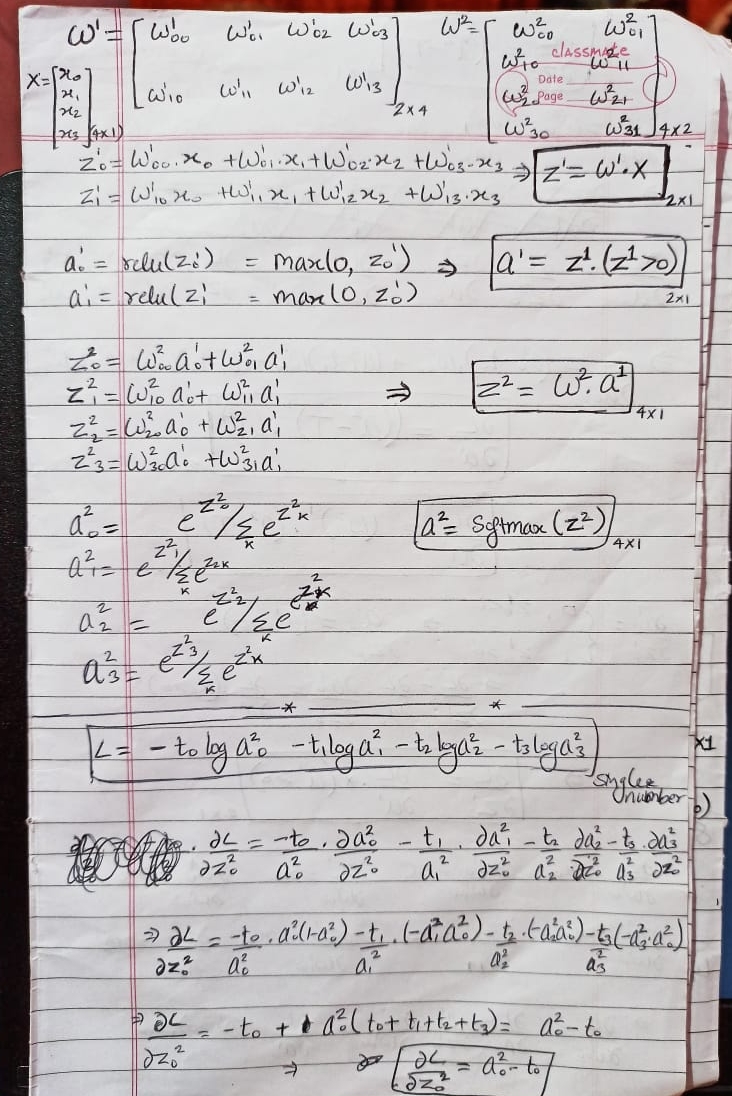 ω¹ = [ω¹₀₀ ω¹₀₁ ω¹₀₂ ω¹₀₃
ω¹₁₀ ω¹₁₁ ω¹₁₂ ω¹₁₃] 2×4
ω² = [ω²₀₀ ω²₀₁
ω²₁₀ ω²₁₁
ω²₂₀ ω²₂₁
ω²₃₀ ω²₃₁] 4×2
classmate
Date
Page
X = [x₀
x₁
x₂
x₃] (4×1)
z¹₀ = ω¹₀₀·x₀ + ω¹₀₁·x₁ + ω¹₀₂·x₂ + ω¹₀₃·x₃ ⇒ z¹ = ω¹·X 2×1
z¹₁ = ω¹₁₀x₀ + ω¹₁₁x₁ + ω¹₁₂x₂ + ω¹₁₃·x₃
a¹₀ = relu(z¹₀) = max(0, z¹₀) ⇒ a¹ = z¹·(z¹>0) 2×1
a¹₁ = relu(z¹₁ = max(0, z¹₀)
z²₀ = ω²₀₀a¹₀ + ω²₀₁a¹₁
z²₁ = ω²₁₀a¹₀ + ω²₁₁a¹₁ ⇒ z² = ω²·a¹ 4×1
z²₂ = ω²₂₀a¹₀ + ω²₂₁a¹₁
z²₃ = ω²₃₀a¹₀ + ω²₃₁a¹₁
a²₀ = e^z²₀/Σₖ e^z²ₖ a² = Softmax(z²) 4×1
a²₁ = e^z²₁/Σₖ e^z²ₖ
a²₂ = e^z²₂/Σₖ e^z²ₖ
a²₃ = e^z²₃/Σₖ e^z²ₖ
L = -t₀ log a²₀ - t₁ log a²₁ - t₂ log a²₂ - t₃ log a²₃
Single number
×1
b)
∂L/∂z²₀ = -t₀/a²₀ · ∂a²₀/∂z²₀ - t₁/a₁² · ∂a²₁/∂z²₀ - t₂/a²₂ ∂a²₂/∂z²₀ - t₃/a²₃ · ∂a²₃/∂z²₀
⇒ ∂L/∂z²₀ = -t₀/a²₀ · a²₀(1-a²₀) - t₁/a₁² · (-a²₁a²₀) - t₂/a²₂ · (-a²₂a²₀) - t₃/a²₃ (-a²₃·a²₀)
⇒ ∂L/∂z₀² = -t₀ + a²₀(t₀ + t₁ + t₂ + t₃) = a²₀ - t₀
⇒ ∂L/∂z²₀ = a²₀ - t₀